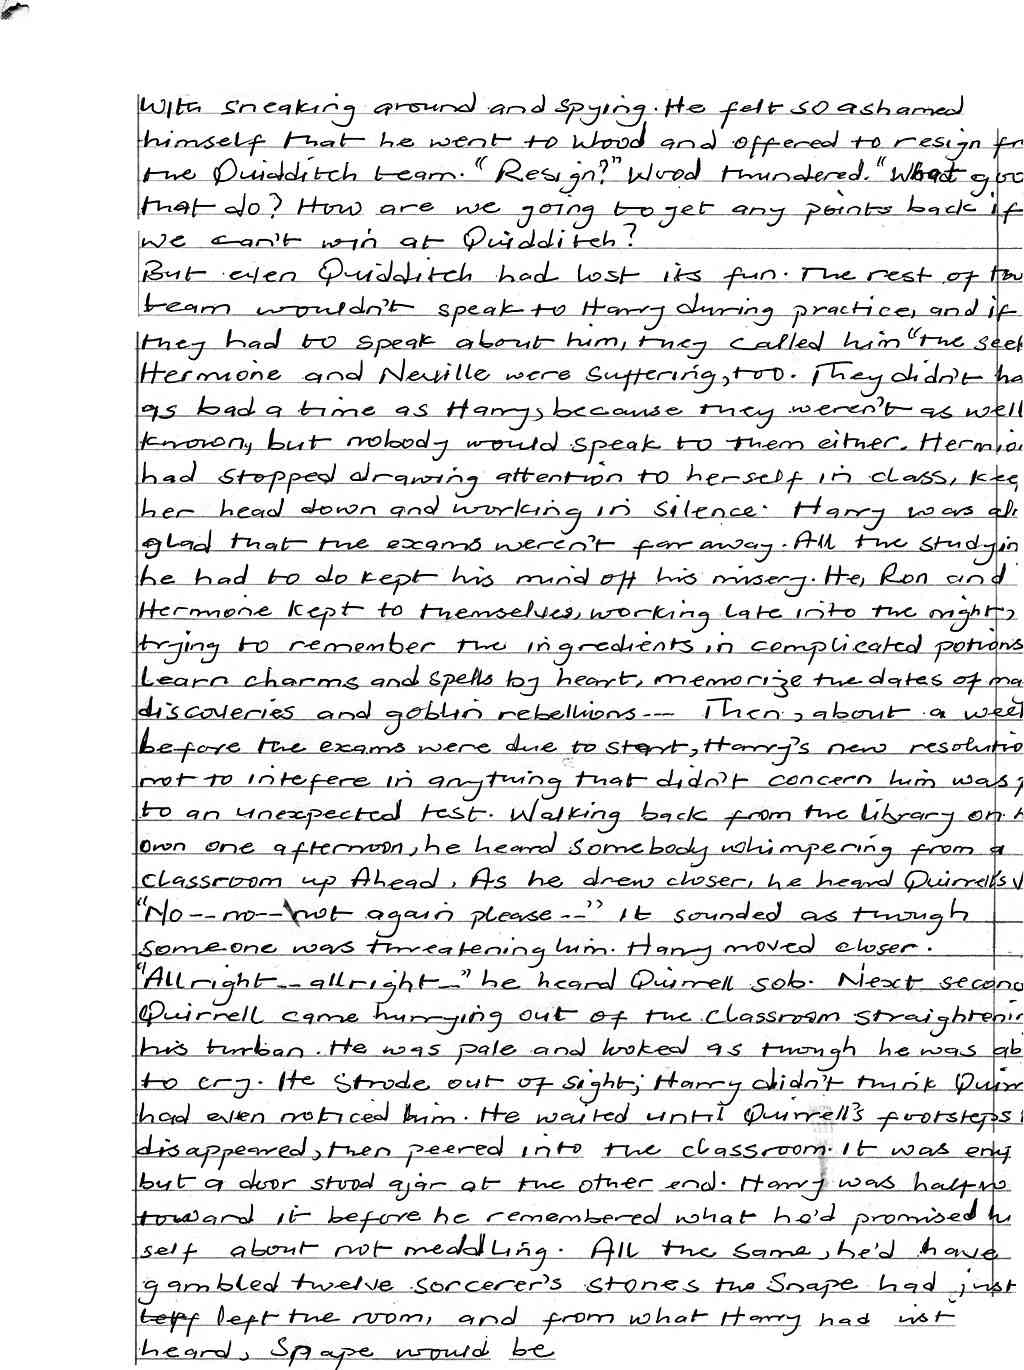 With sneaking around and spying. He felt so ashamed
himself that he went to Wood and offered to resign fr
the Quidditch team. "Resign?" Wood thundered. "What goo
that do? How are we going to get any points back if
we can't win at Quidditch?
But even Quidditch had lost its fun. The rest of the
team wouldn't speak to Harry during practice, and if
they had to speak about him, they called him "the seek
Hermione and Neville were suffering, too. They didn't ha
as bad a time as Harry, because they weren't as well
known, but nobody would speak to them either. Hermio
had stopped drawing attention to herself in class, kee
her head down and working in silence. Harry was al
glad that the exams weren't far away. All the studyin
he had to do kept his mind off his misery. He, Ron and
Hermione kept to themselves, working late into the night,
trying to remember the ingredients in complicated potions
Learn charms and spells by heart, memorize the dates of ma
discoveries and goblin rebellions-- Then, about a week
before the exams were due to start, Harry's new resolutio
not to intefere in anything that didn't concern him was p
to an unexpected test. Walking back from the library on h
own one afternoon, he heard somebody whimpering from a
classroom up Ahead. As he drew closer, he heard Quirrell's v
"No--no--not again please--" it sounded as though
someone was threatening him. Harry moved closer.
"All right--allright--" he heard Quirrell sob. Next second
Quirrell came hurrying out of the classroom straightenin
his turban. He was pale and looked as though he was ab
to cry. He strode out of sight; Harry didn't think Quirr
had even noticed him. He waited until Quirrell's footsteps
disappeared, then peered into the classroom. It was em
but a door stood ajar at the other end. Harry was halfw
toward it before he remembered what he'd promised h
self about not meddling. All the same, he'd have
gambled twelve sorcerer's stones the Snape had just
left the room, and from what Harry had ust
heard, Snape would be